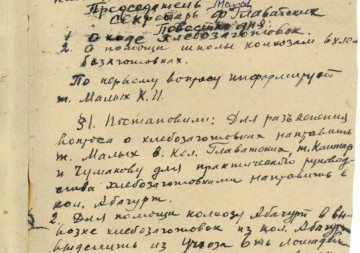 Председатель Малых
Секретарь Главатских
Повестка дня:
1 О ходе хлебозаготовок.
2. О помощи школы колхозам в хле-
бозаготовках.
По первому вопросу информирует
т. Малых К.И.
§1. Постановили: Для разъяснения
вопроса о хлебозаготовках направить
т. Малых в. кол. Главатских, т.
и Чумакову для практического руковод-
ства хлебозаготовками направить в
кол. Абагурт.
2. Для помощи колхозу Абагурт в вы-
возке хлебозаготовок из кол. Абагурт
выделить из лошадей